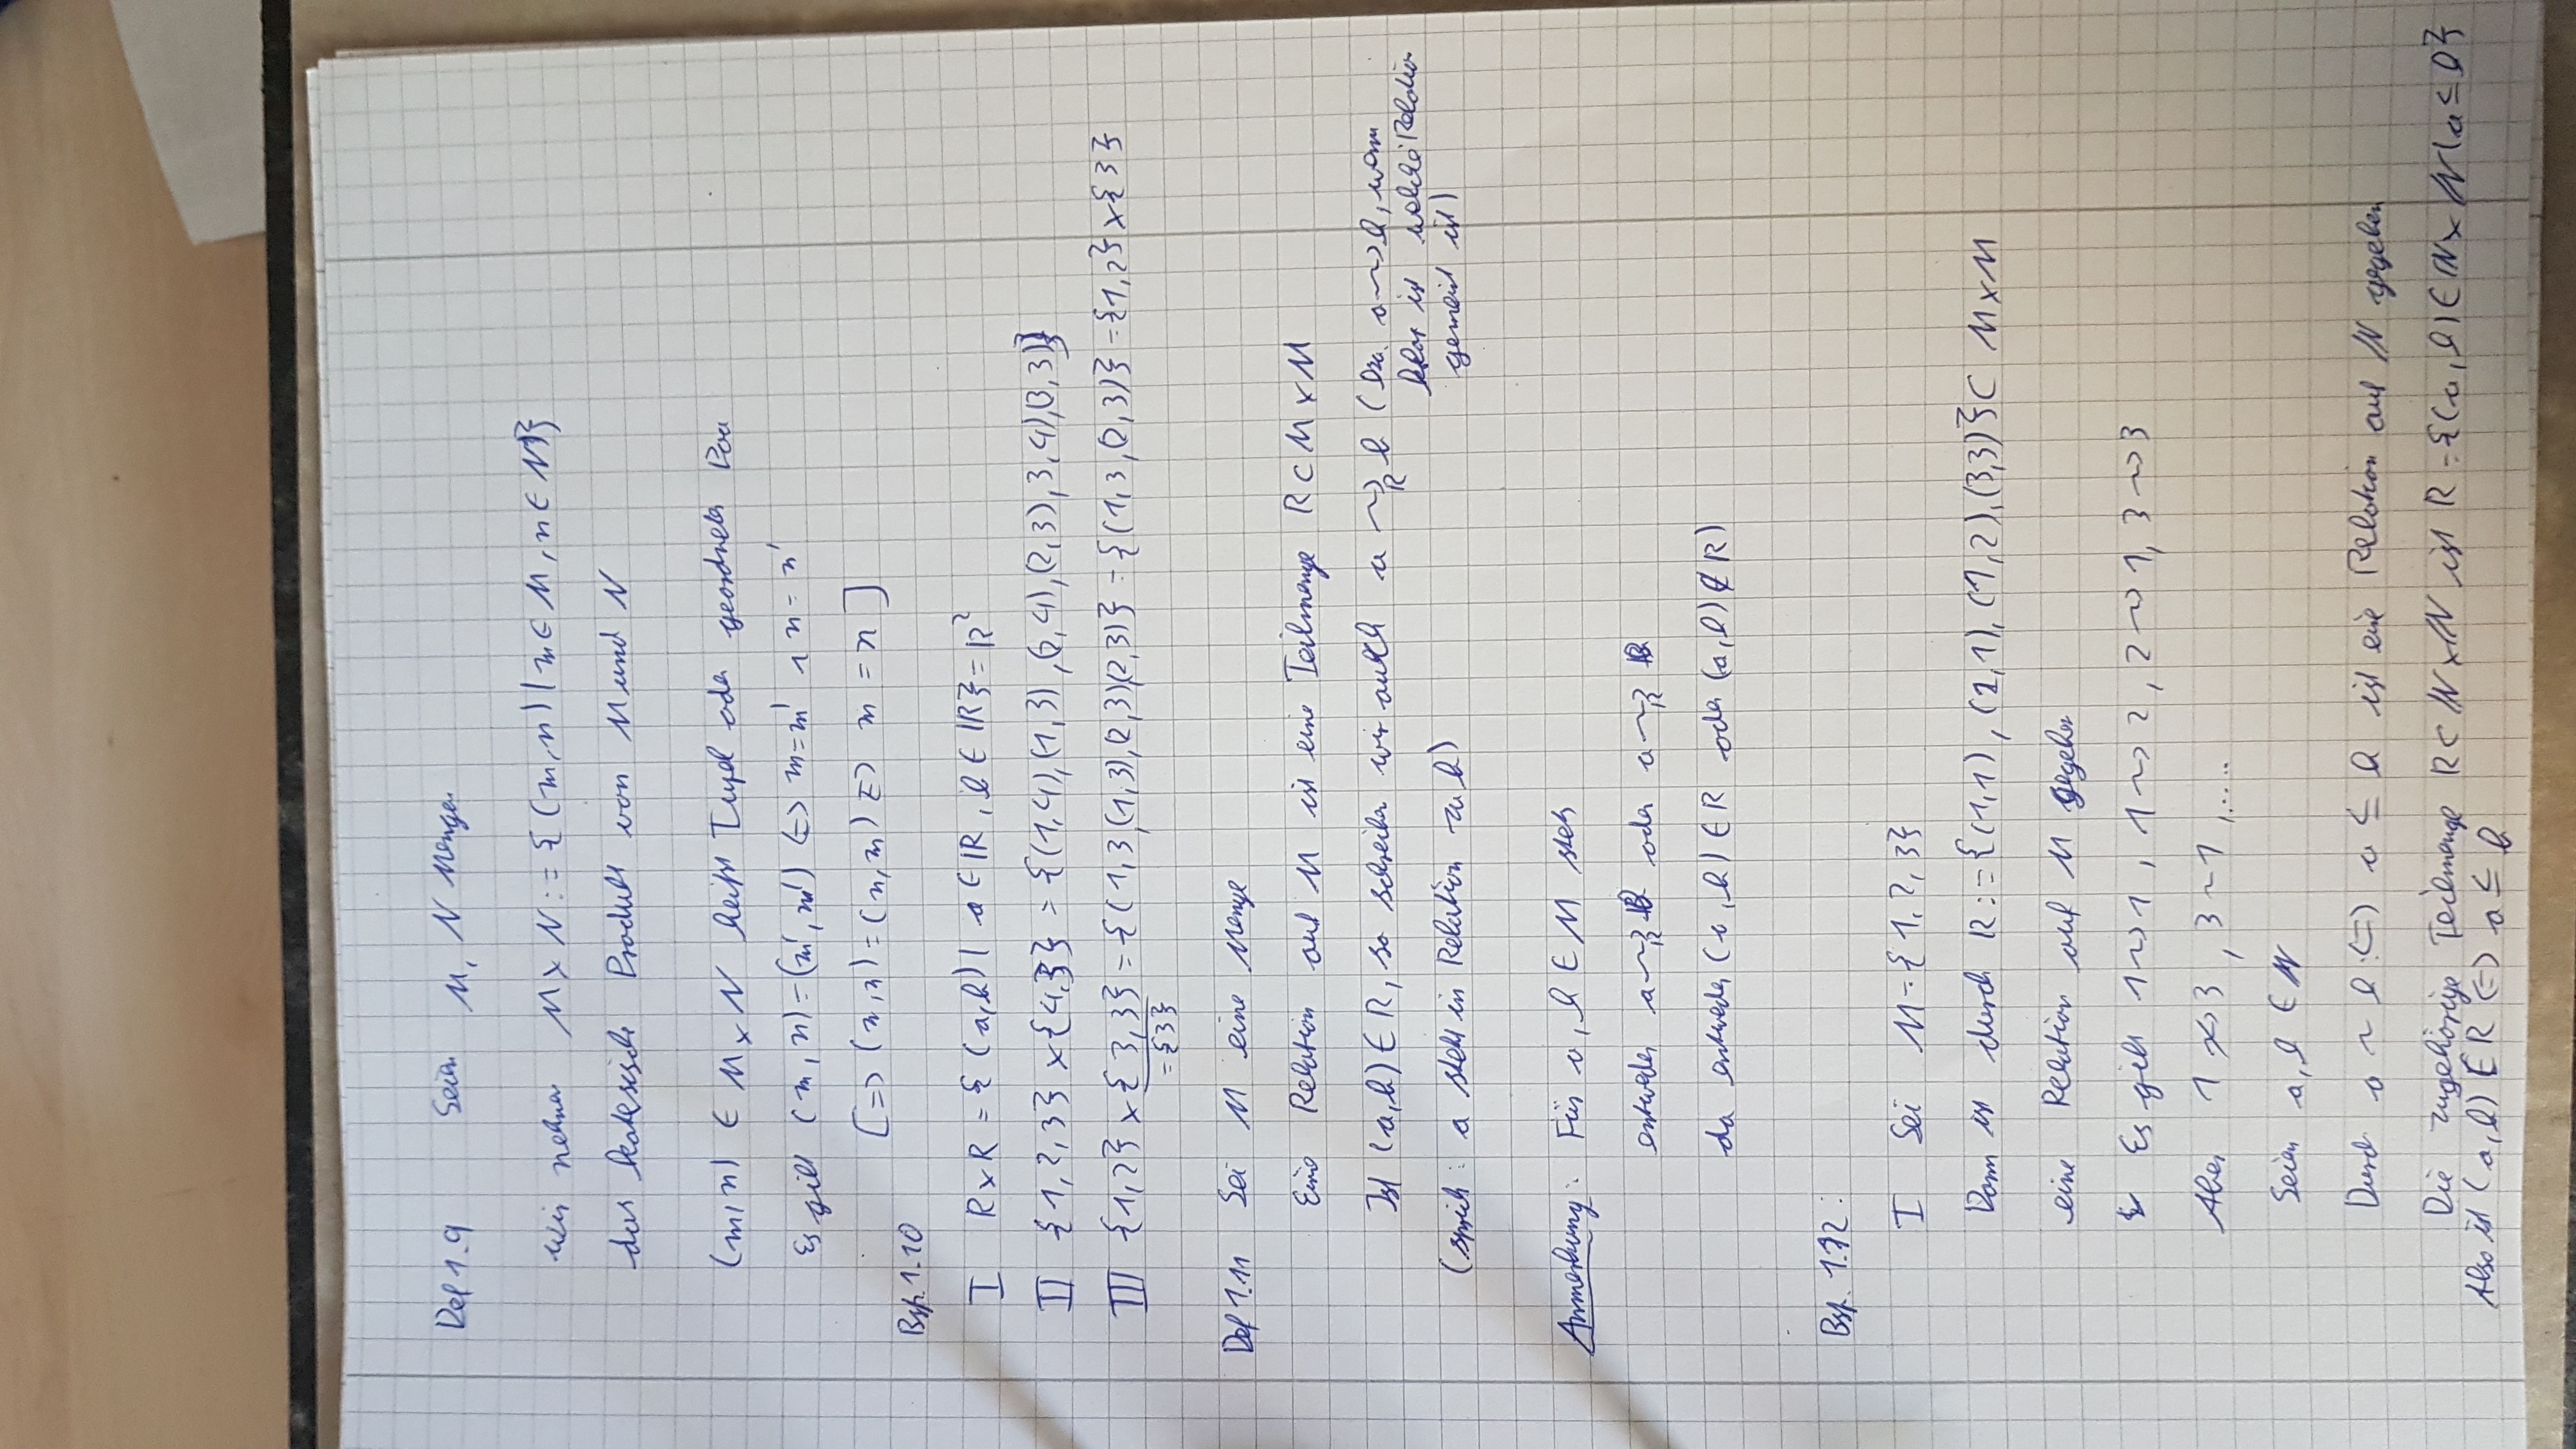 Def 1.9 Seien M, N Mengen
wir nehmen M × N := { (m,n) | m ∈ M , n ∈ N }
das kartesische Produkt von M und N
(m,n) ∈ M × N heißt Tupel oder geordnetes Paar
Es gilt (m, n) = (m', n') <=> m = m' ∧ n = n'
[=> (m,n) = (n,m) <=> m = n ]
Bsp. 1.10
I R × R = { (a,b) | a ∈ ℝ , b ∈ ℝ } = ℝ²
II {1, 2, 3} × {4,3} = {(1,4),(1,3) ,(2,4),(2,3),3,4),(3,3)}
III {1,2} × { 3,3} = {(1,3,(1,3),(2,3)(2,3)} = {(1,3,(2,3)} = {1,2} × {3}
= {3}
Def 1.11 Sei M eine Menge
Eine Relation auf M ist eine Teilmenge R ⊂ M × M
Ist (a,b) ∈ R, so schreiben wir auch a ~>_R b ( bzw. a ~> b, wenn
klar ist welche Relation
(sprich: a steht in Relation zu b) gemeint ist)
Anmerkung: Für a, b ∈ M steht
entweder a ~>_R b oder a ~>_R b
da entweder (a, b) ∈ R oder (a, b) ∉ R)
Bsp. 1.12 :
I Sei M = { 1, 2, 3}
Dann ist durch R := {(1,1) , (2,1), (1,2), (3,3)} ⊂ M × M
eine Relation auf M gegeben
Es gilt 1 ~> 1 , 1 ~> 2 , 2 ~> 1, 3 ~> 3
Aber 1 ≁> 3 , 3 ~ 1 , .....
Seien a, b ∈ ℕ
Durch a ~ b :<=> a ≤ b ist eine Relation auf ℕ gegeben
Die zugehörige Teilmenge R ⊂ ℕ × ℕ ist R = {(a, b) ∈ ℕ × ℕ | a ≤ b}
Also ist (a, b) ∈ R <=> a ≤ b